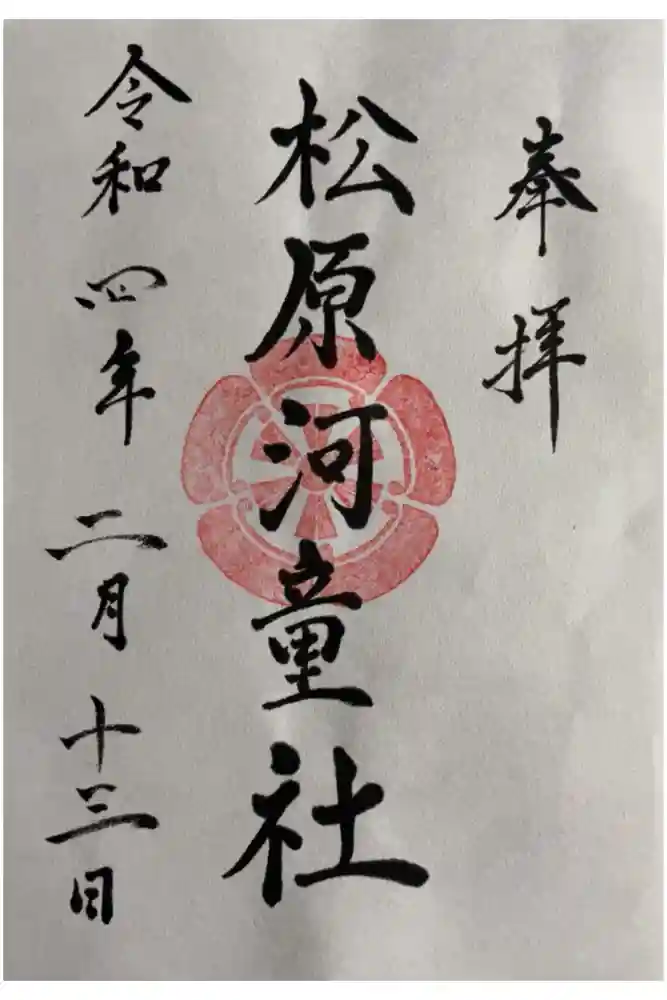 奉拝
松原河童社
令和四年二月十三日